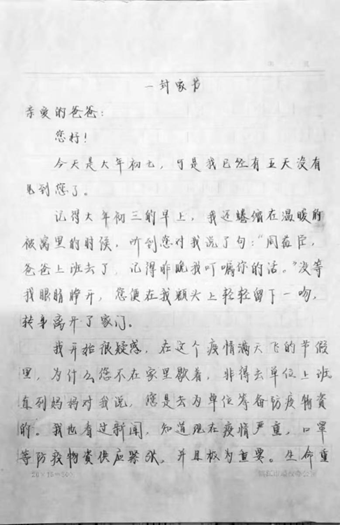 一封家书
亲爱的爸爸：
您好！
今天是大年初七，可是我已经有五天没有
见到您了。
记得大年初三的早上，我还蜷缩在温暖的
被窝里的时候，听到您对我说了句："周
爸爸上班去了，记得昨晚我叮嘱你的话。"没等
我眼睛睁开，您便在我额头上轻轻留下一吻，
转身离开了家门。
我开始很疑惑，在这个疫情满天飞的节假
里，为什么您不在家里歇着，非得去单位上班
直到妈妈对我说，您是去为单位筹备防疫物资
的。我也看过新闻，知道现在疫情严重，口罩
等防疫物资供应紧张，并且极为重要。生命重